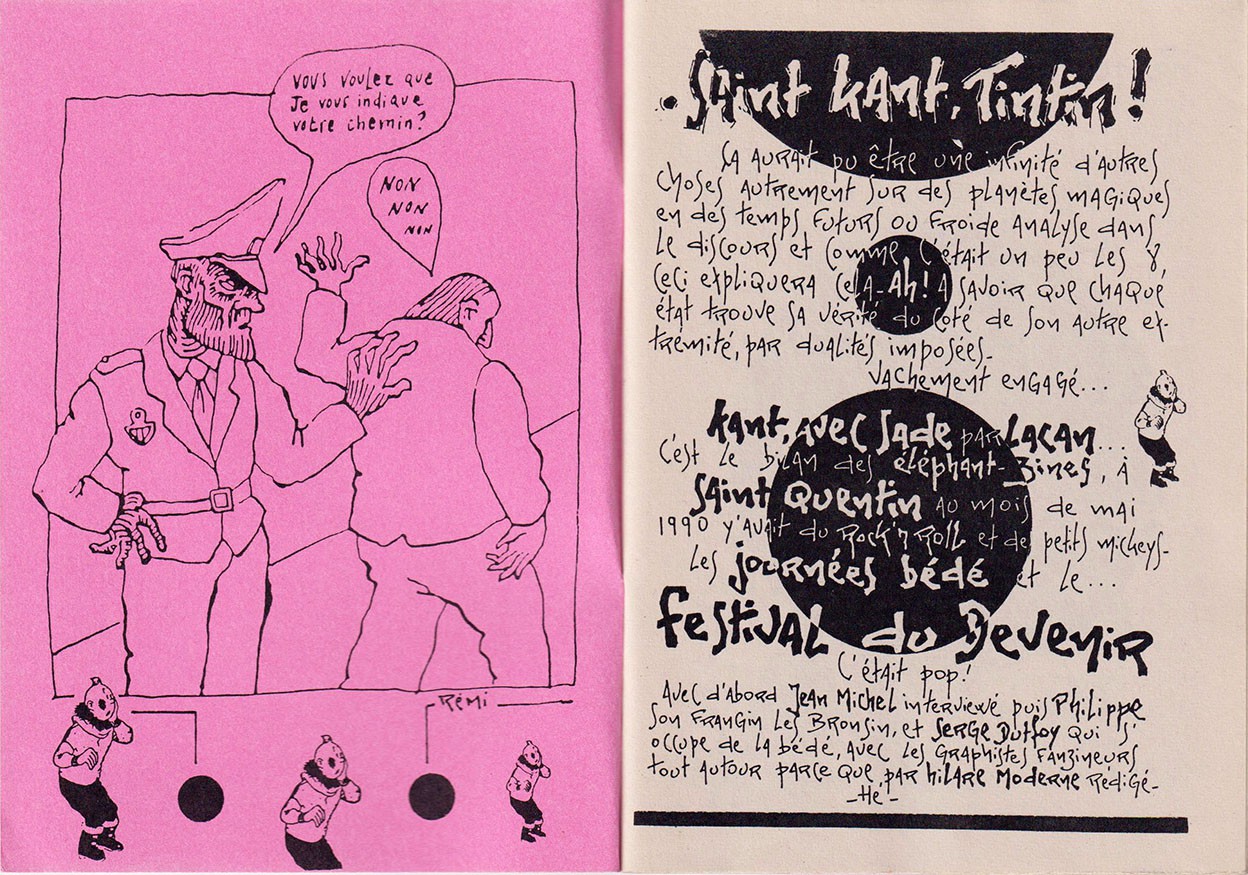 VOUS VOULEZ QUE
Je vous indique
votre chemin?
NON
NON
NON
RÉMI
. Saint Kant, Tintin !
ÇA AURAIT pu être une infinité d'AUTRES
choses AUTREMENT SUR des planètes MAGIQUES
en des temps FUTURS OU FROIDE ANALYSE dans
Le discours et comme c'était un peu les 8,
ceci expliquera celA - Ah ! A SAVOIR que chaque
état trouve SA Vérité du côté de Son AUTRE ex-
trémité, par dualités imposées_
VACHEMENT engAgé...
Kant, Avec Sade par LACAN...
C'est le bilan des éléphant-zines, à
Saint Quentin AU MOIS de mai
1990 Y'AVAit du Rock'n Roll et de petits mickeys-
Les journées bédé et le...
FestivAL du Devenir
C'était pop!
Avec d'abord Jean Michel interviewé puis Philippe
Son FRANgin Les Bronsin, et Serge Dutfoy qui s'
occupe de la bédé, avec les GRAPHistes Fanzineurs
tout autour parce que, par hilare Moderne Rédigé-
- Hé -